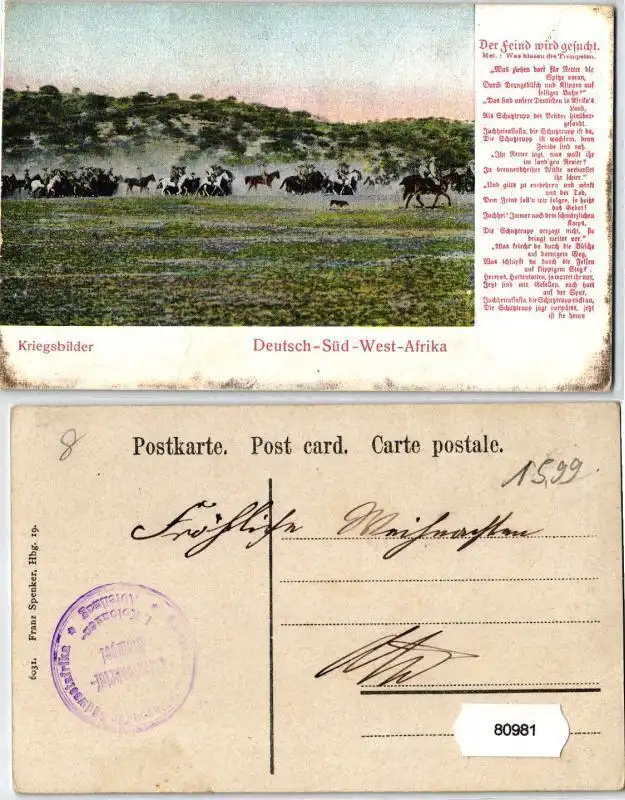 Der Feind wird gesucht.
Mel.: Was blasen die Trompeten.
„Was ziehen dort für Reiter die
Spitze voran,
Durch Dorngebüsch und Klippen auf
felsiger Bahn?"
„Das sind unsere Deutschen in Afrika's
Land,
Als Schutztrupp der Brüder hinüber-
gesandt.
Juchheirassassa, die Schutztrupp ist da,
Die Schutztrupp ist wachsam, denn
Feinde sind nah.
„Ihr Reiter sagt, was wollt ihr
im sand'gen Revier?
In brennendheißer Wüste verdurstet
ihr schier."
„Und gilts zu entbehren und winkt
uns der Tod,
Dem Feind soll'n wir folgen, so heißt
das Gebot!
Juchhei! Immer nach dem schwärzlichen
Korps,
Die Schutztrupp verzagt nicht, sie
dringt weiter vor."
„Was kriecht da durch die Büsche
auf dornigem Weg,
Was schlüpft da durch die Felsen
auf klippigem Steg?
Hereros, Hottentotten, so wartet ihr nur,
Jetzt sind wir Gesellen, euch hart
auf der Spur.
Juchheirassassa, die Schutztrupp rückt an,
Die Schutztrupp jagt vorwärts, jetzt
ist sie heran
Kriegsbilder
Deutsch-Süd-West-Afrika
8
Postkarte. Post card. Carte postale.
15,99
Fröhliche Weihnachten
6031. Franz Spenker, Hbg. 19.
Kolonnen-
Abteilung
Südwestafrika
80981